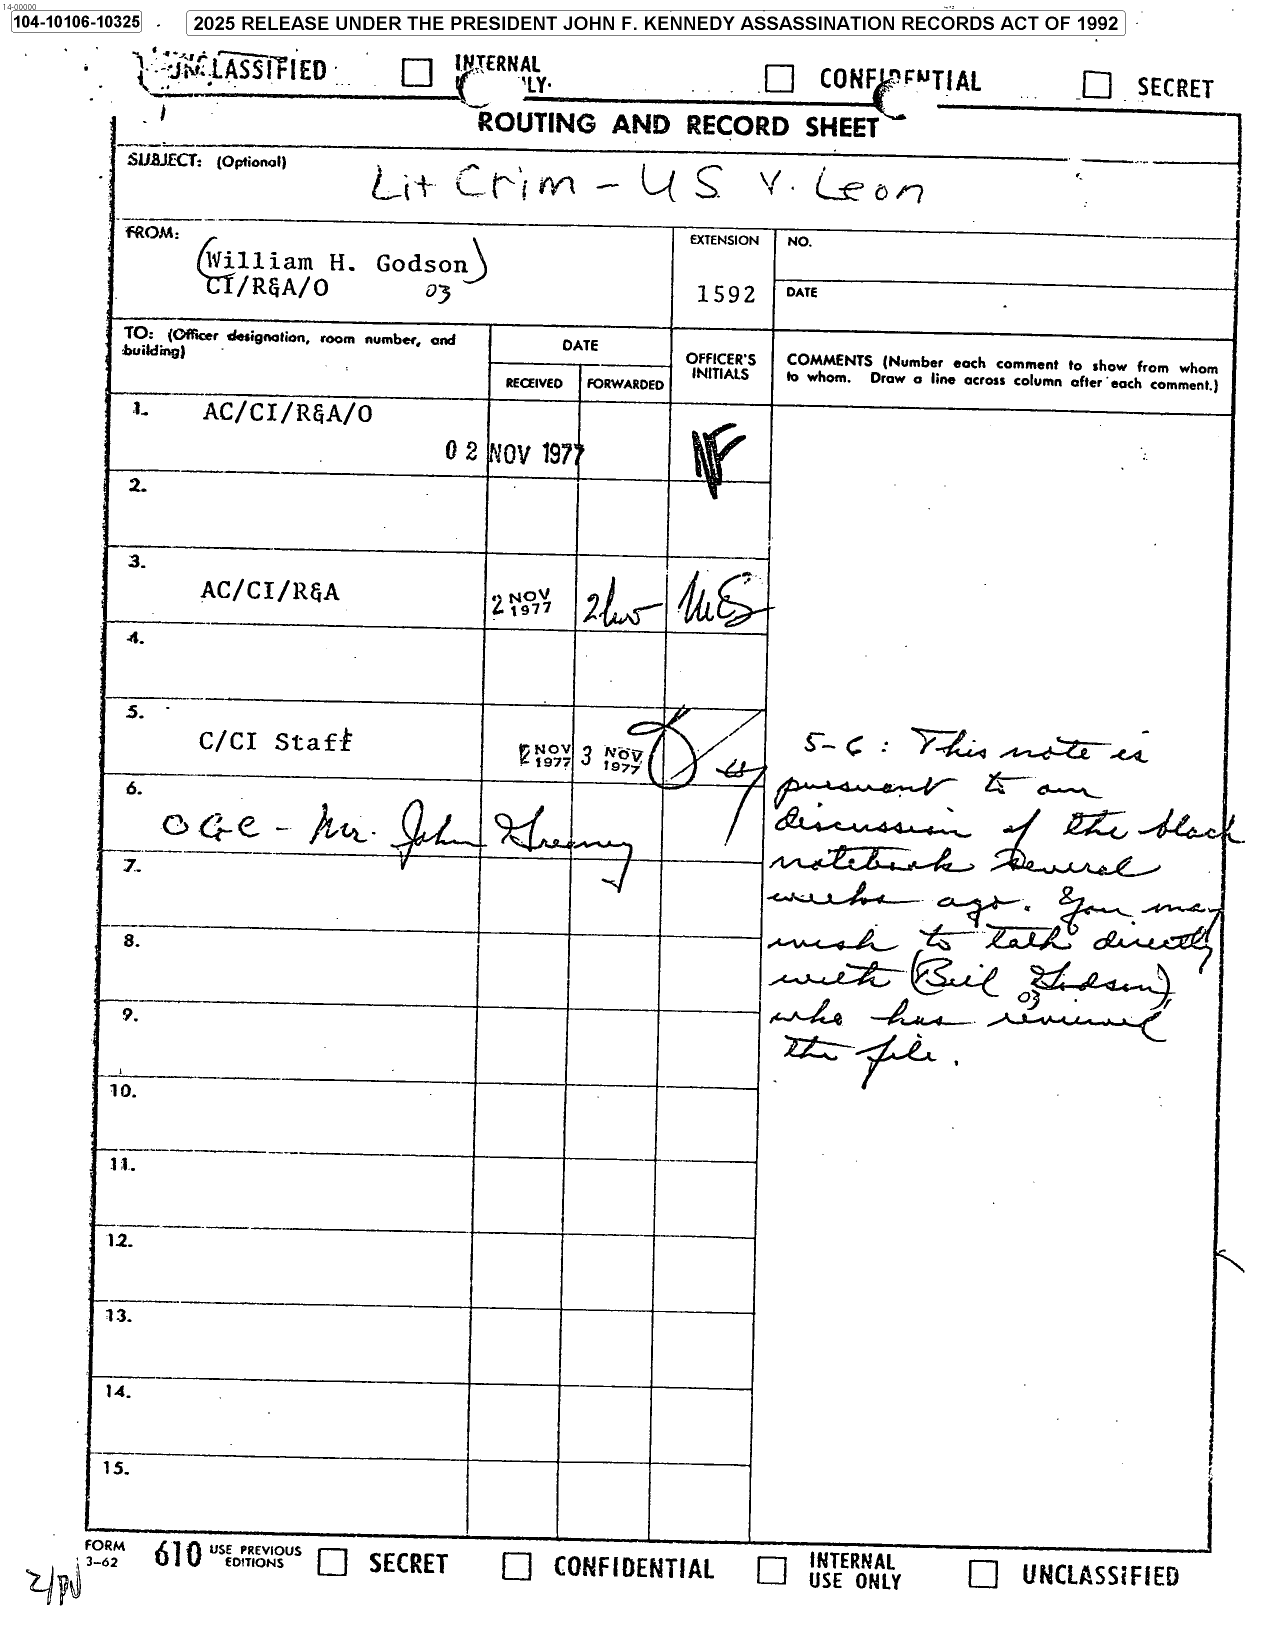 14-00000
104-10106-10325
2025 RELEASE UNDER THE PRESIDENT JOHN F. KENNEDY ASSASSINATION RECORDS ACT OF 1992
UNCLASSIFIED INTERNAL CONFIDENTIAL SECRET
ROUTING AND RECORD SHEET
SUBJECT: (Optional)
Lit Crim - US v. Leon
FROM:
William H. Godson
CI/R&A/O 03
EXTENSION
1592
NO.
DATE
TO: (Officer designation, room number, and
building)
DATE
RECEIVED FORWARDED
OFFICER'S
INITIALS
COMMENTS (Number each comment to show from whom
to whom. Draw a line across column after each comment.)
1. AC/CI/R&A/O
02 NOV 1977
2.
3.
AC/CI/R&A 2 NOV 1977
4.
5.
C/CI Staff 2 NOV 1977 3 NOV 1977
6.
OGC - Mr. John Greaney
7.
8.
9.
10.
11.
12.
13.
14.
15.
5-6: This note is
pursuant to our
discussion of the black
notebook several
weeks ago. You may
wish to talk directly
with (Bill Godson),
03
who has reviewed
the file.
FORM
3-62
610 USE PREVIOUS
EDITIONS
SECRET CONFIDENTIAL INTERNAL
USE ONLY
UNCLASSIFIED